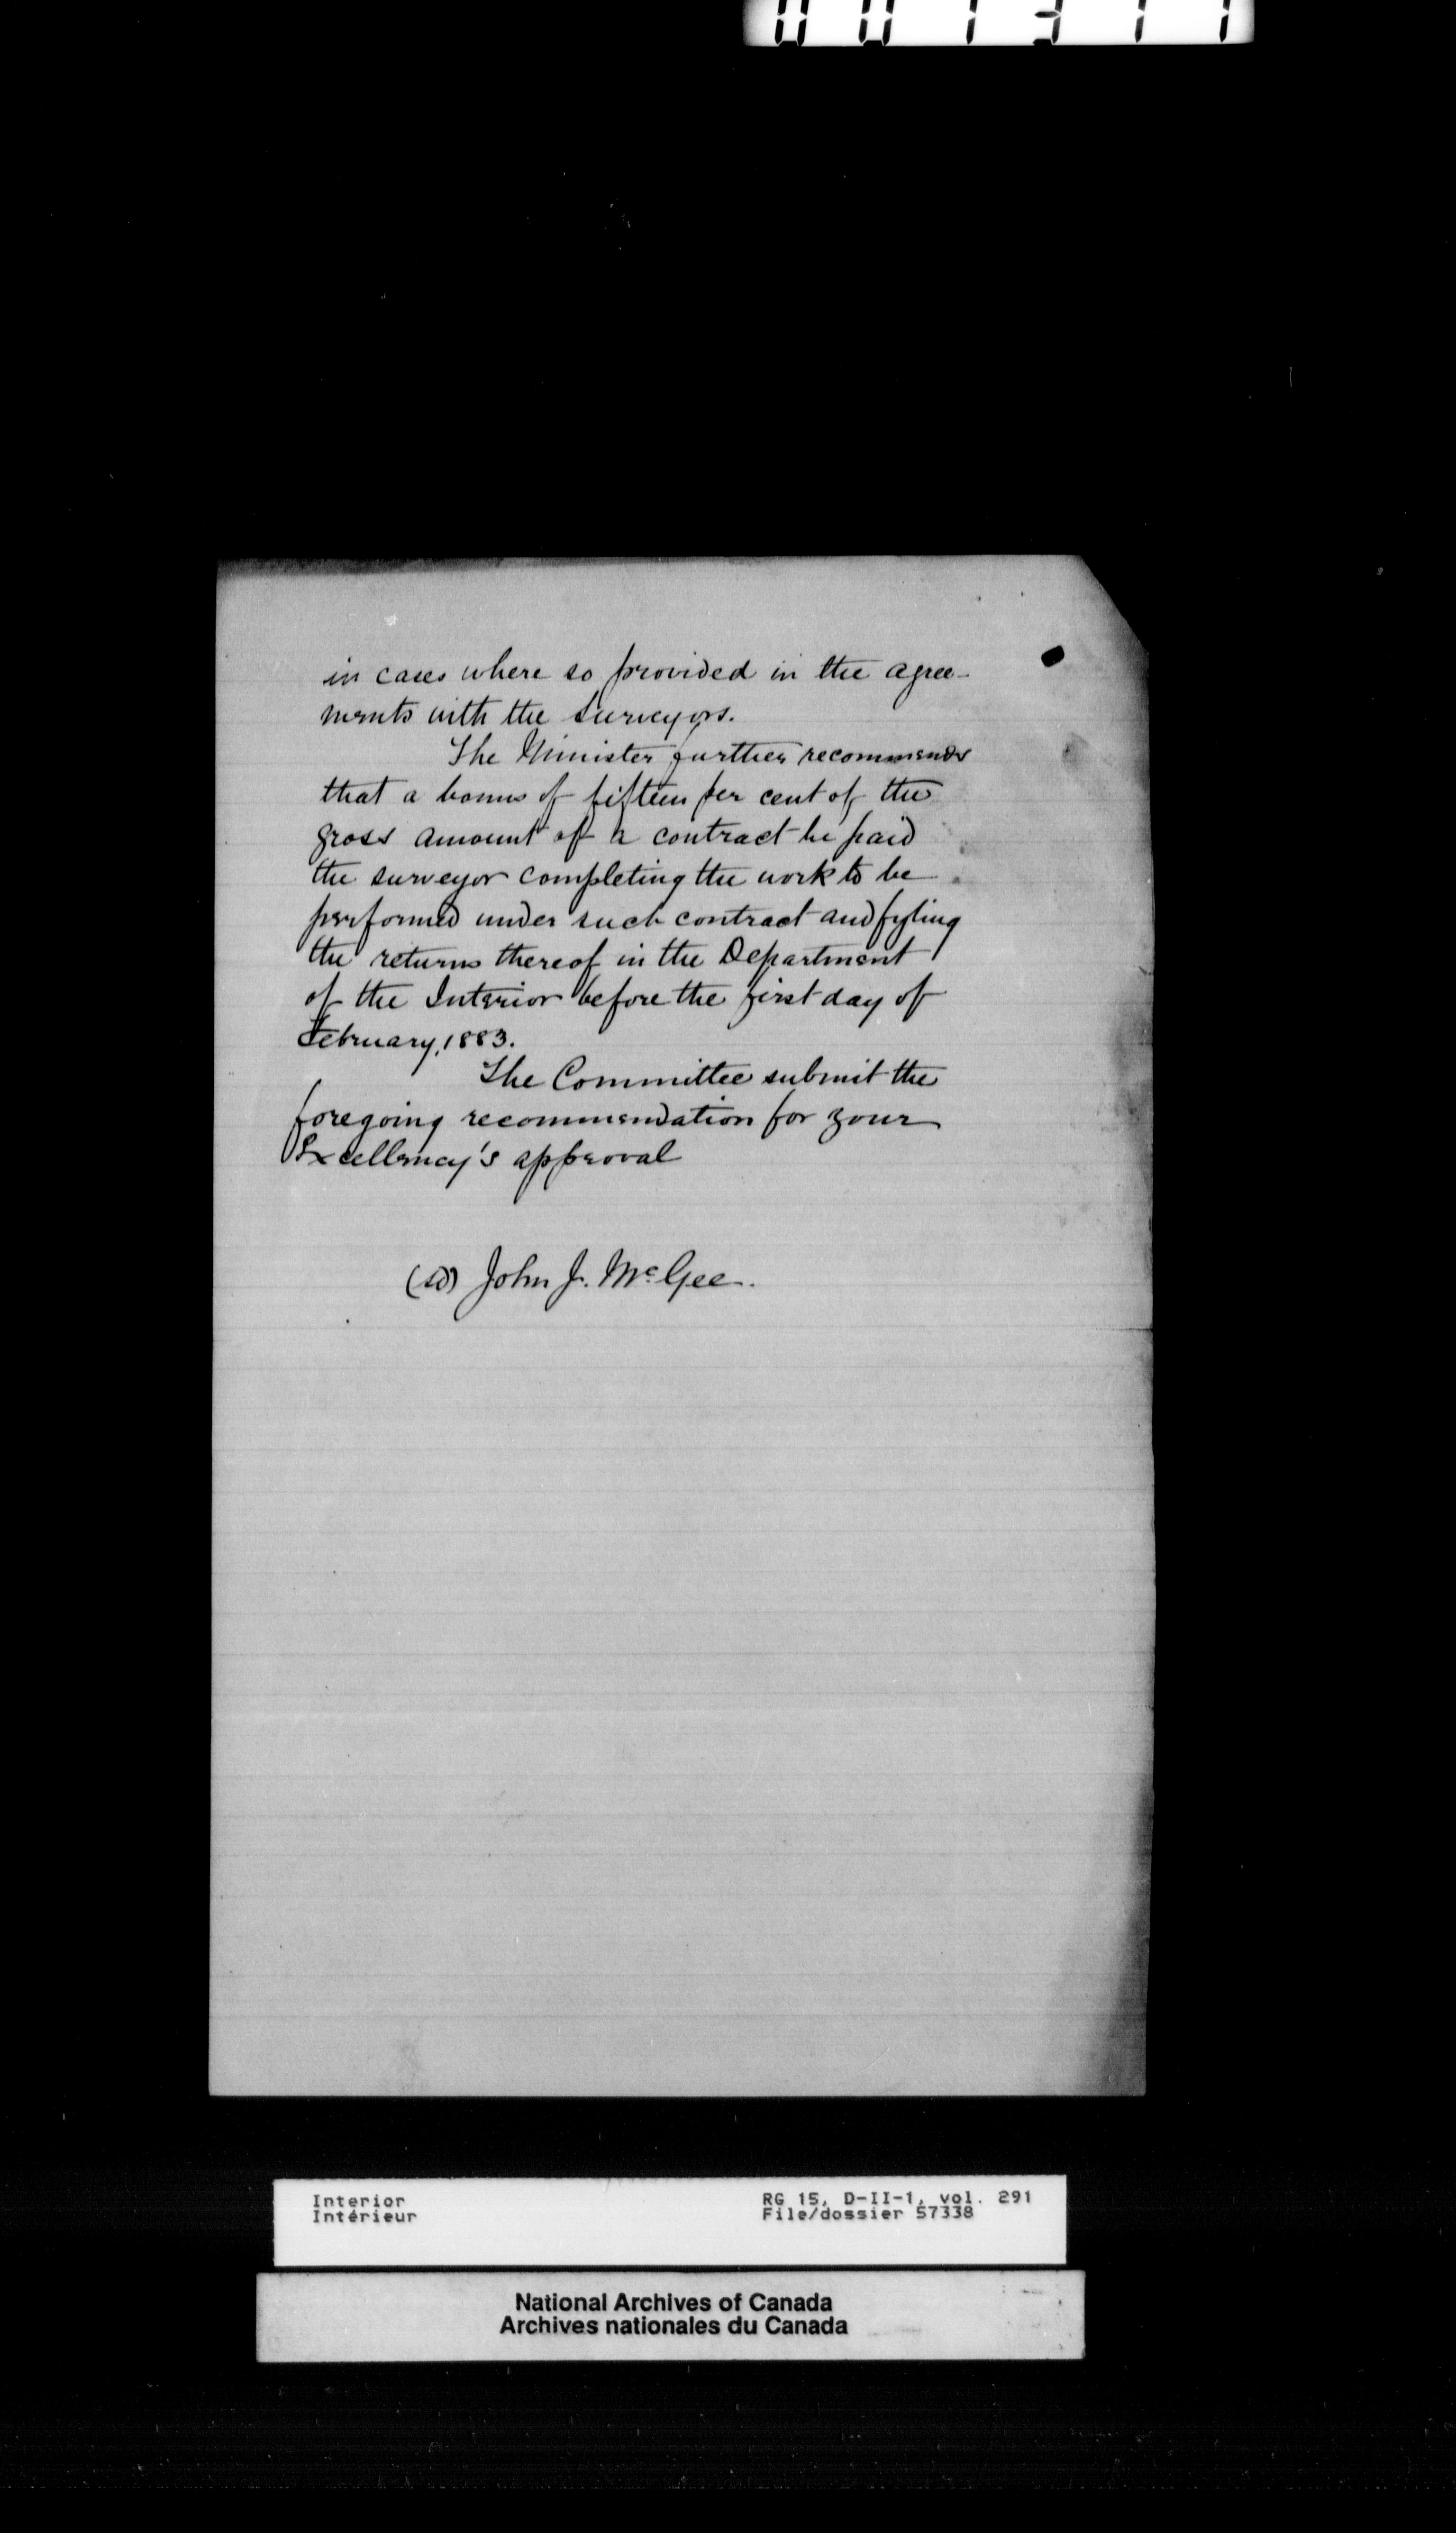 in cases where so provided in the agree-
ments with the surveyors.
The Minister further recommends
that a bonus of fifteen per cent of the
gross amount of a contract be paid
the surveyor completing the work to be
performed under such contract and fyling
the returns thereof in the Department
of the Interior before the first day of
February, 1883.
The Committee submit the
foregoing recommendation for your
Excellency's approval
(sd) John J. McGee.
Interior
Intérieur
RG 15, D-II-1, vol. 291
File/dossier 57338
National Archives of Canada
Archives nationales du Canada